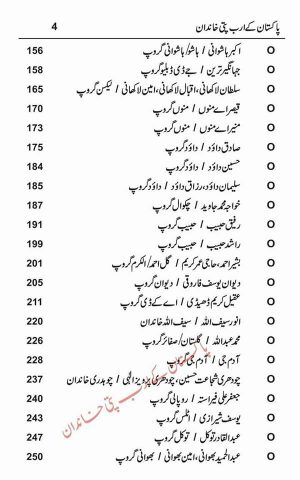 پاکستان کے ارب پتی خاندان 4
O اکبر ہاشوانی / ہاشو/ہاشوانی گروپ 156
O جہانگیر ترین / جے ڈی ڈبلیو گروپ 158
O سلطان لاکھانی، اقبال لاکھانی، امین لاکھانی / لیکسن گروپ 165
O قیصر اے منوں / منوں گروپ 170
O منیر اے منوں / منوں گروپ 173
O صادق داؤد / داؤد گروپ 175
O حسین داؤد / داؤد گروپ 184
O سلیمان داؤد، رزاق داؤد / داؤد گروپ 185
O خواجہ محمد جاوید / چکوال گروپ 187
O رفیق حبیب / حبیب گروپ 191
O راشد حبیب / حبیب گروپ 199
O بشیر احمد، حاجی عمر کریم / گل احمد/الکرم گروپ 201
O دیوان یوسف فاروقی / دیوان گروپ 205
O عقیل کریم ڈھیڈی / اے کے ڈی گروپ 211
O انور سیف اللہ / سیف اللہ خاندان 220
O محمد عبداللہ / گلستان/صفائر گروپ 226
O آدم جی / آدم جی گروپ 228
O چودھری شجاعت حسین، چودھری پرویز الٰہی / چوہدری خاندان 237
O جعفر علی فیراستہ / روپالی گروپ 240
O یوسف شیرازی / اٹلس گروپ 243
O عبدالقادر توکل / توکل گروپ 247
O عبدالحمید بھوانی، امین بھوانی / بھوانی گروپ 250
پاکستان کے ارب پتی خاندان